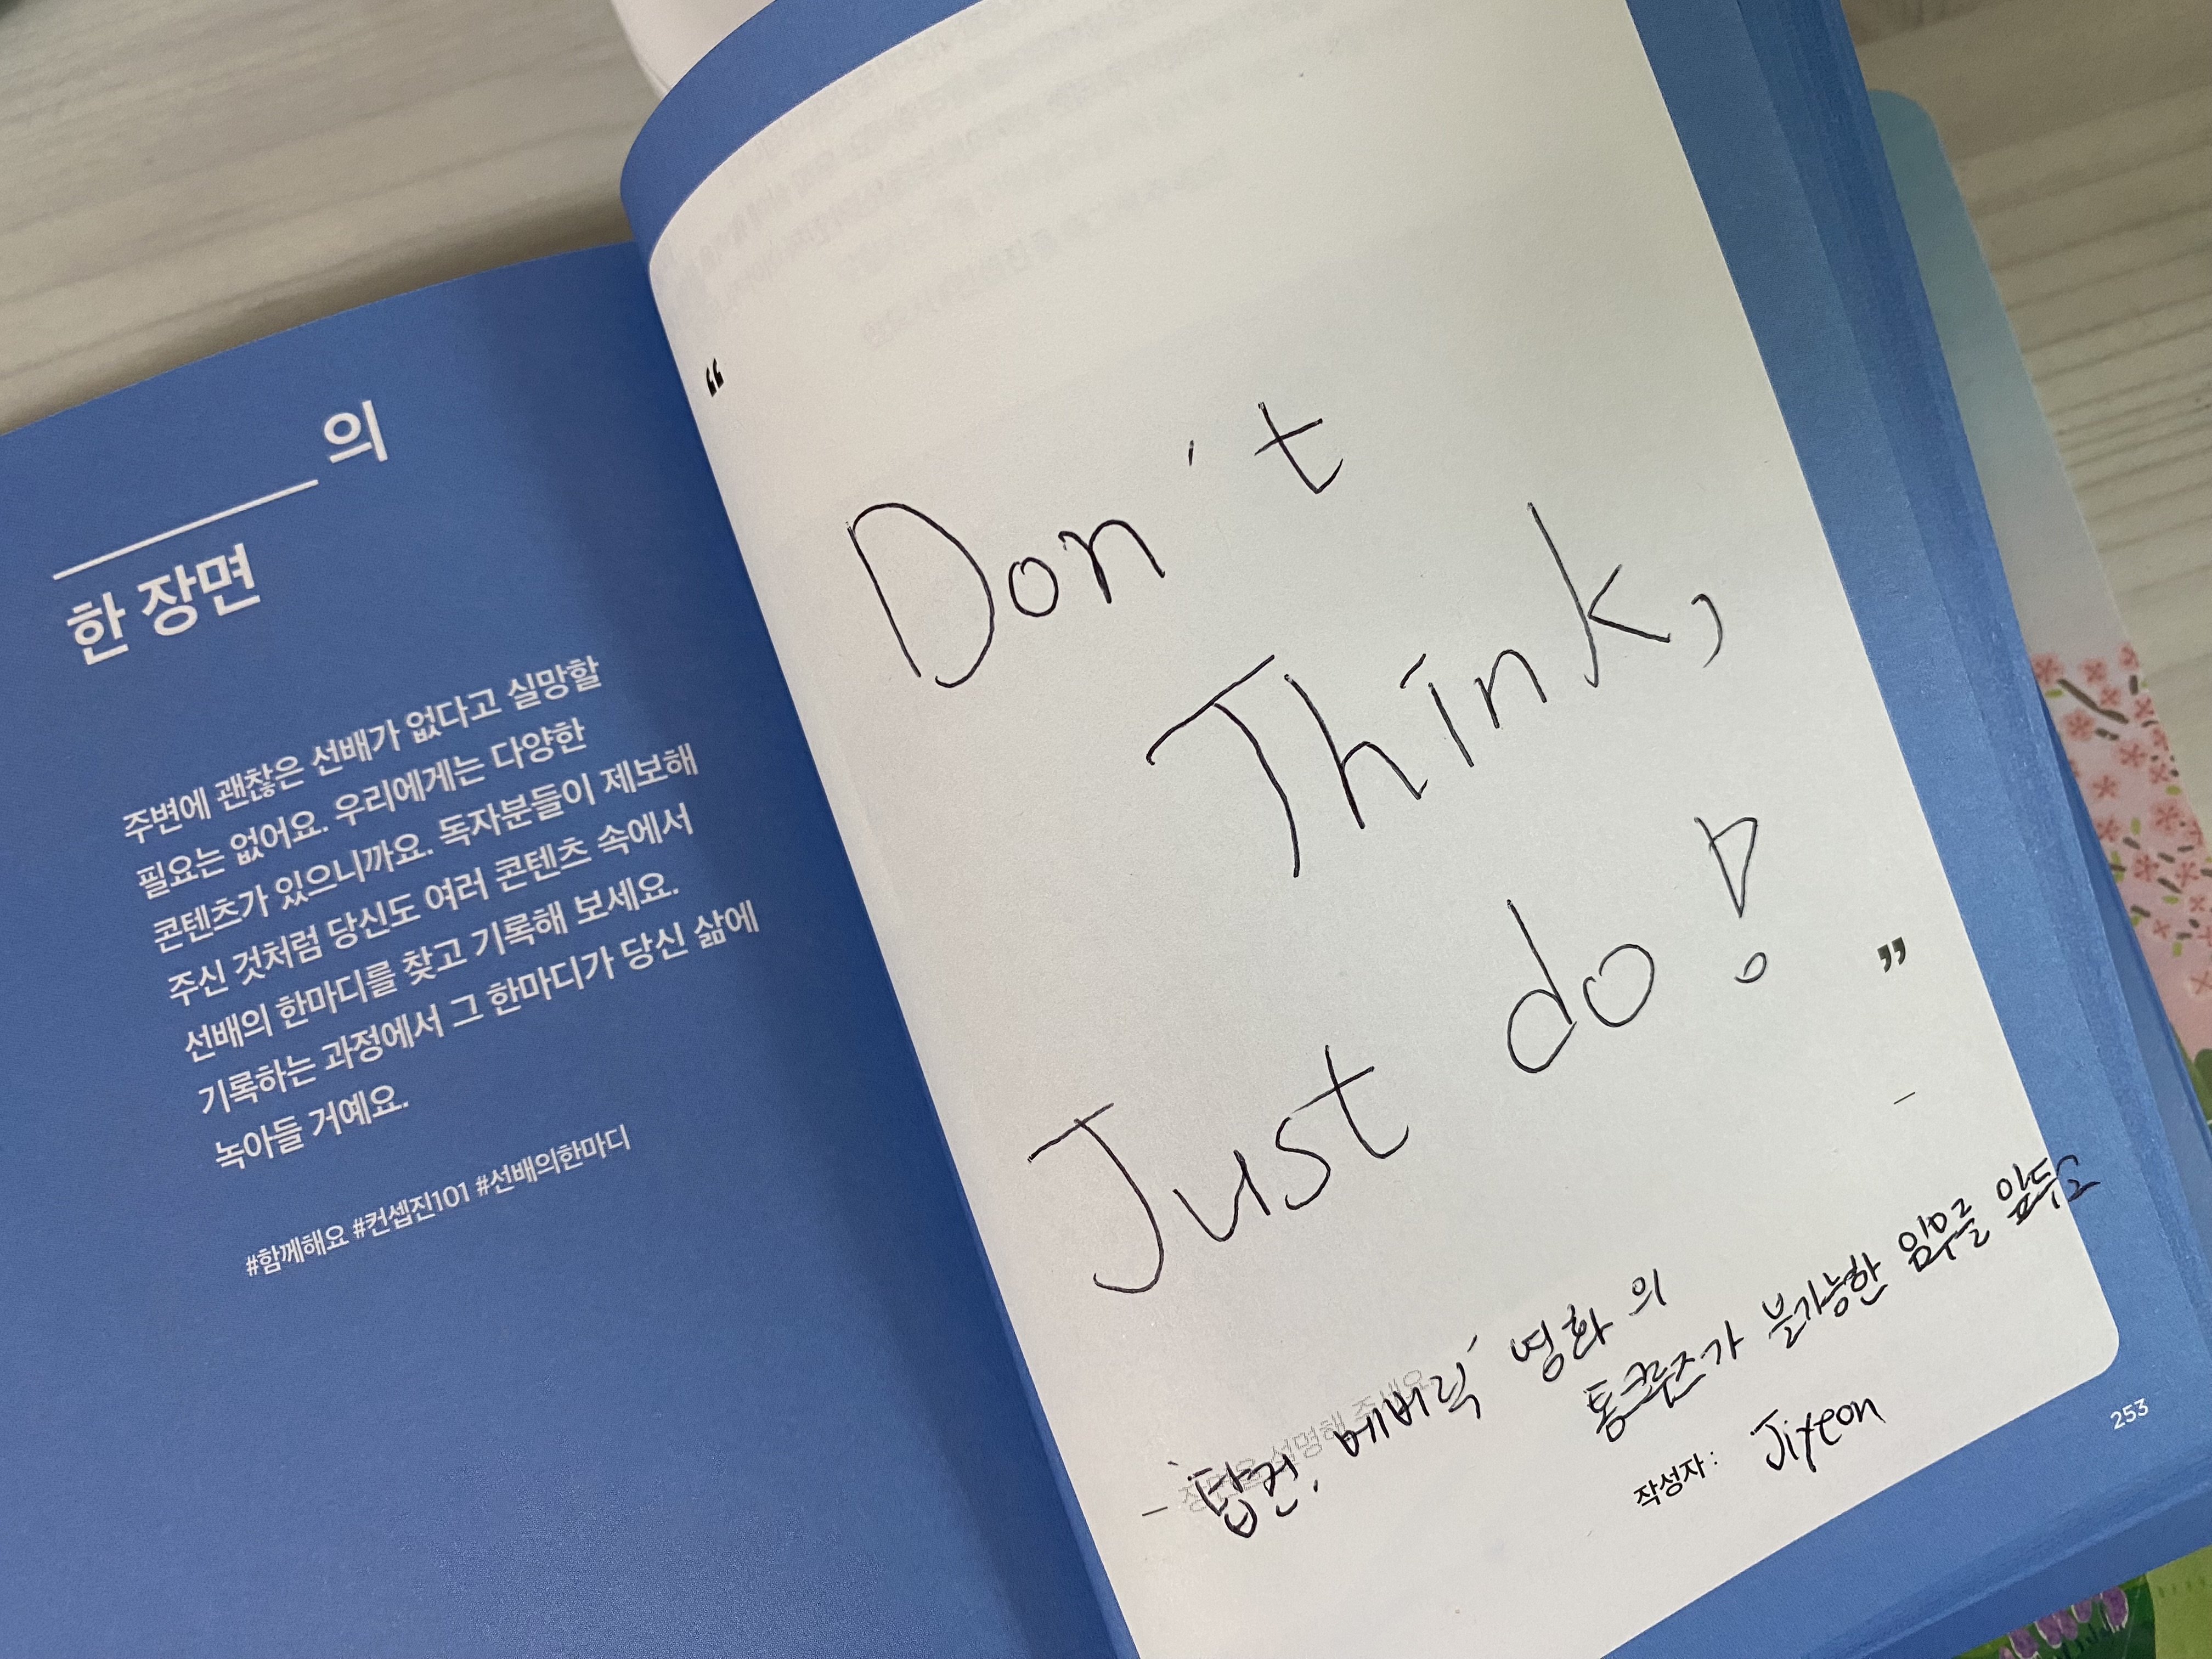 의
한 장면
주변에 괜찮은 선배가 없다고 실망할
필요는 없어요. 우리에게는 다양한
콘텐츠가 있으니까요. 독자분들이 제보해
주신 것처럼 당신도 여러 콘텐츠 속에서
선배의 한마디를 찾고 기록해 보세요.
기록하는 과정에서 그 한마디가 당신 삶에
녹아들 거예요.
#함께해요 #컨셉진101 #선배의한마디
“
Don't
Think,
Just do!
”
– 장면을 설명해 주세요 –
'탑건, 메버릭' 영화의
톰크루즈가 불가능한 임무를 앞두고
작성자 : Jiyeon
253